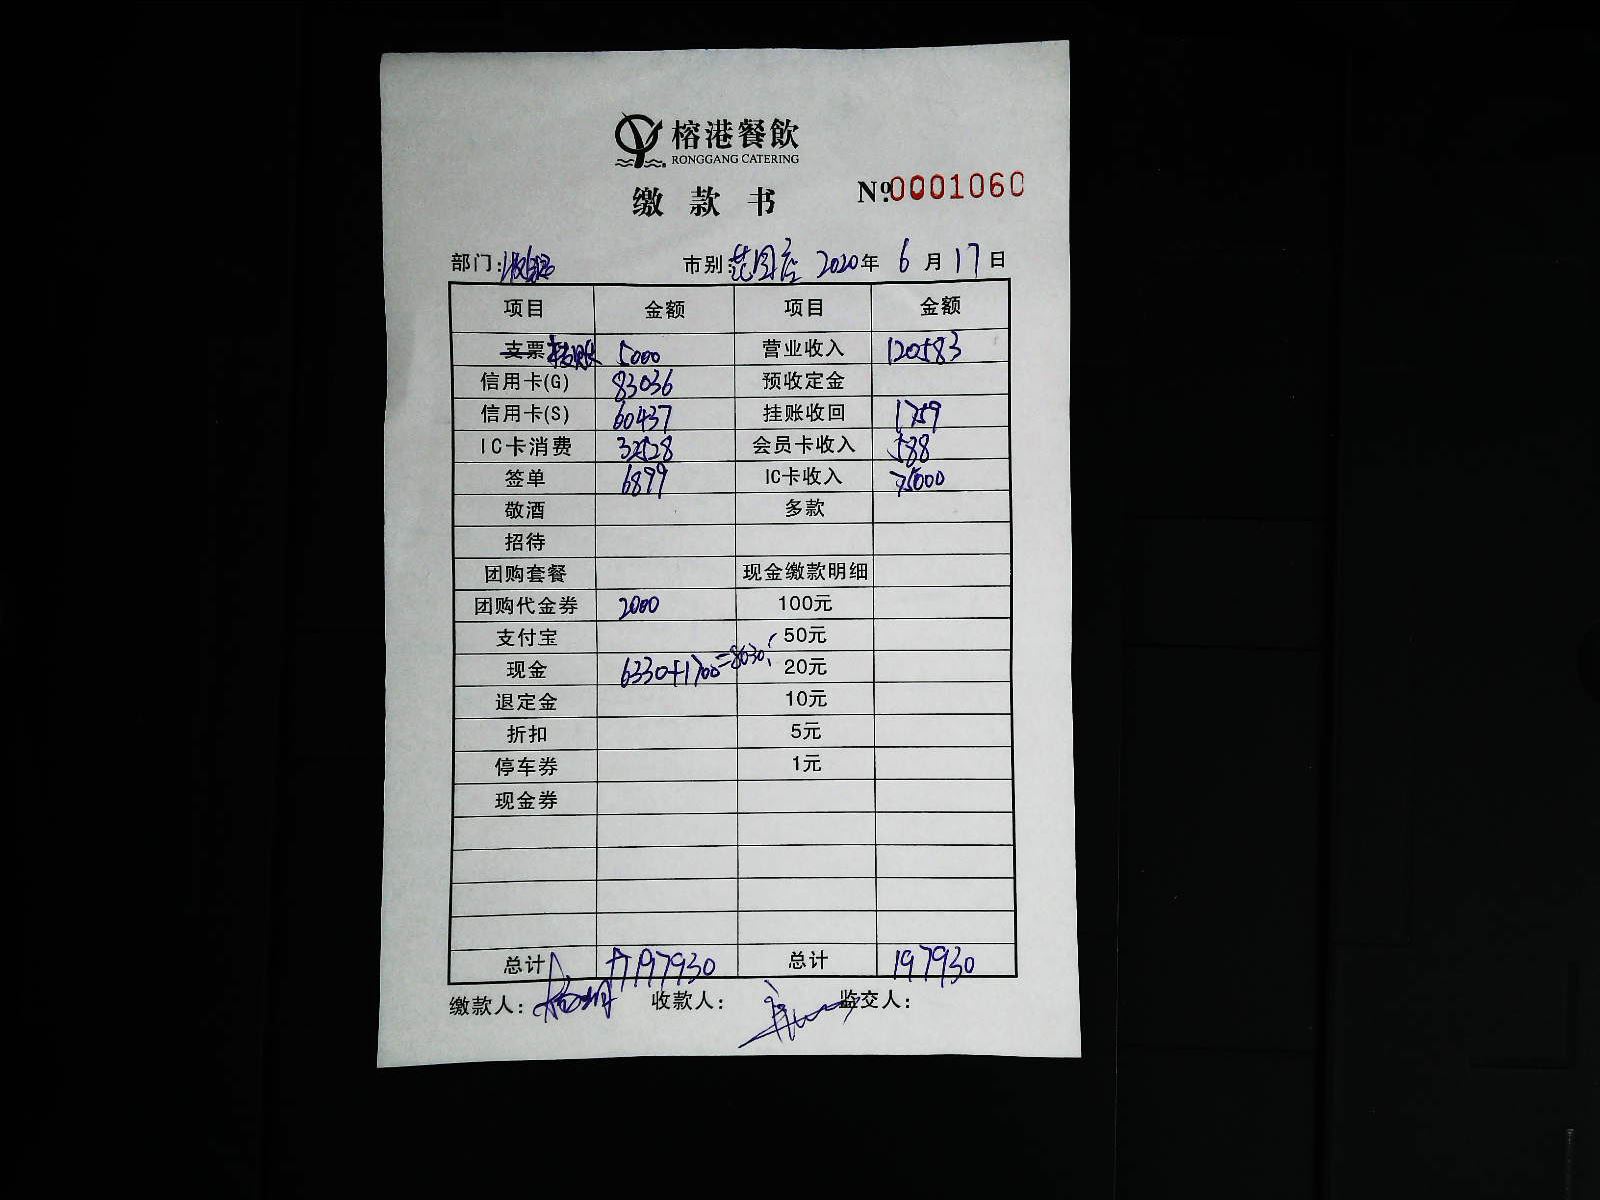 榕港餐飲
RONGGANG CATERING
缴款书 №0001060
部门: 收银 市别: 花园店 2020年 6月17日
项目 金额 项目 金额
支票 5000 营业收入 120583
信用卡(G) 83036 预收定金
信用卡(S) 60437 挂账收回 1759
IC卡消费 32528 会员卡收入 588
签单 6899 IC卡收入 75000
敬酒 多款
招待
团购套餐 现金缴款明细
团购代金券 2000 100元
支付宝 50元
现金 6330+1700=8030 20元
退定金 10元
折扣 5元
停车券 1元
现金券
总计 197930 总计 197930
缴款人: 收款人: 监交人: